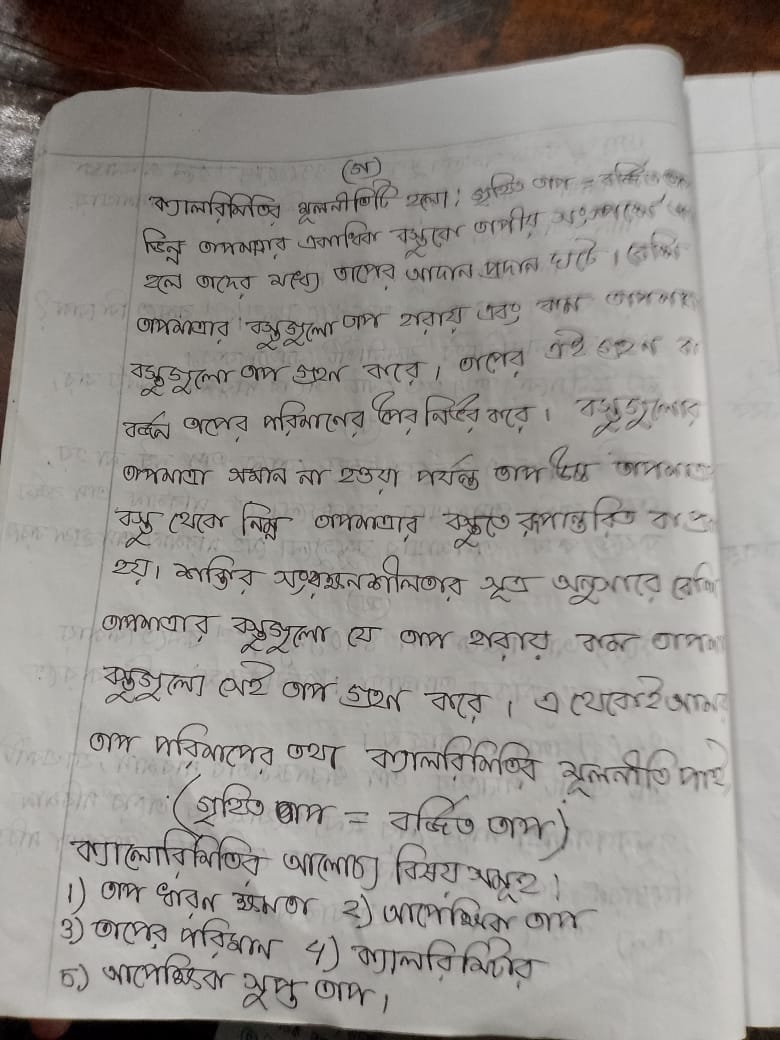 (গ)
ক্যালরিমিতির মূলনীতিটি হলো। গৃহিত তাপ = বর্জিত তাপ
ভিন্ন তাপমাত্রার একাধিক বস্তুকে তাপীয় সংস্পর্শে
হলে তাদের মধ্যে তাপের আদান প্রদান ঘটে। বেশি
তাপমাত্রার বস্তুগুলো তাপ হারায় এবং কম তাপমাত্রা
বস্তুগুলো তাপ গ্রহন করে। তাপের এই গ্রহন বা
বর্জন তাপের পরিমানের উপর নির্ভর করে। বস্তুগুলোর
তাপমাত্রা সমান না হওয়া পর্যন্ত তাপ উচ্চ তাপমাত্রা
বস্তু থেকে নিম্ন তাপমাত্রার বস্তুতে রূপান্তরিত
হয়। শক্তির সংরক্ষনশীলতার সূত্র অনুসারে বেশি
তাপমাত্রার বস্তুগুলো যে তাপ হারায় কম তাপমা
বস্তুগুলো সেই তাপ গ্রহন করে। এ থেকেই আমর
তাপ পরিমাপের তথা ক্যালরিমিতির মূলনীতি পাই
(গৃহিত তাপ = বর্জিত তাপ)
ক্যালোরিমিতির আলোচ্য বিষয় সমূহ।
1) তাপ ধারন ক্ষমতা 2) আপেক্ষিক তাপ
3) তাপের পরিমান 4) ক্যালরিমিটার
5) আপেক্ষিক সুপ্ত তাপ।